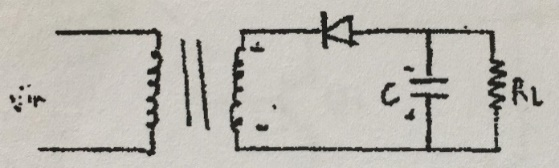 Vin
+
-
-
C
+
RL